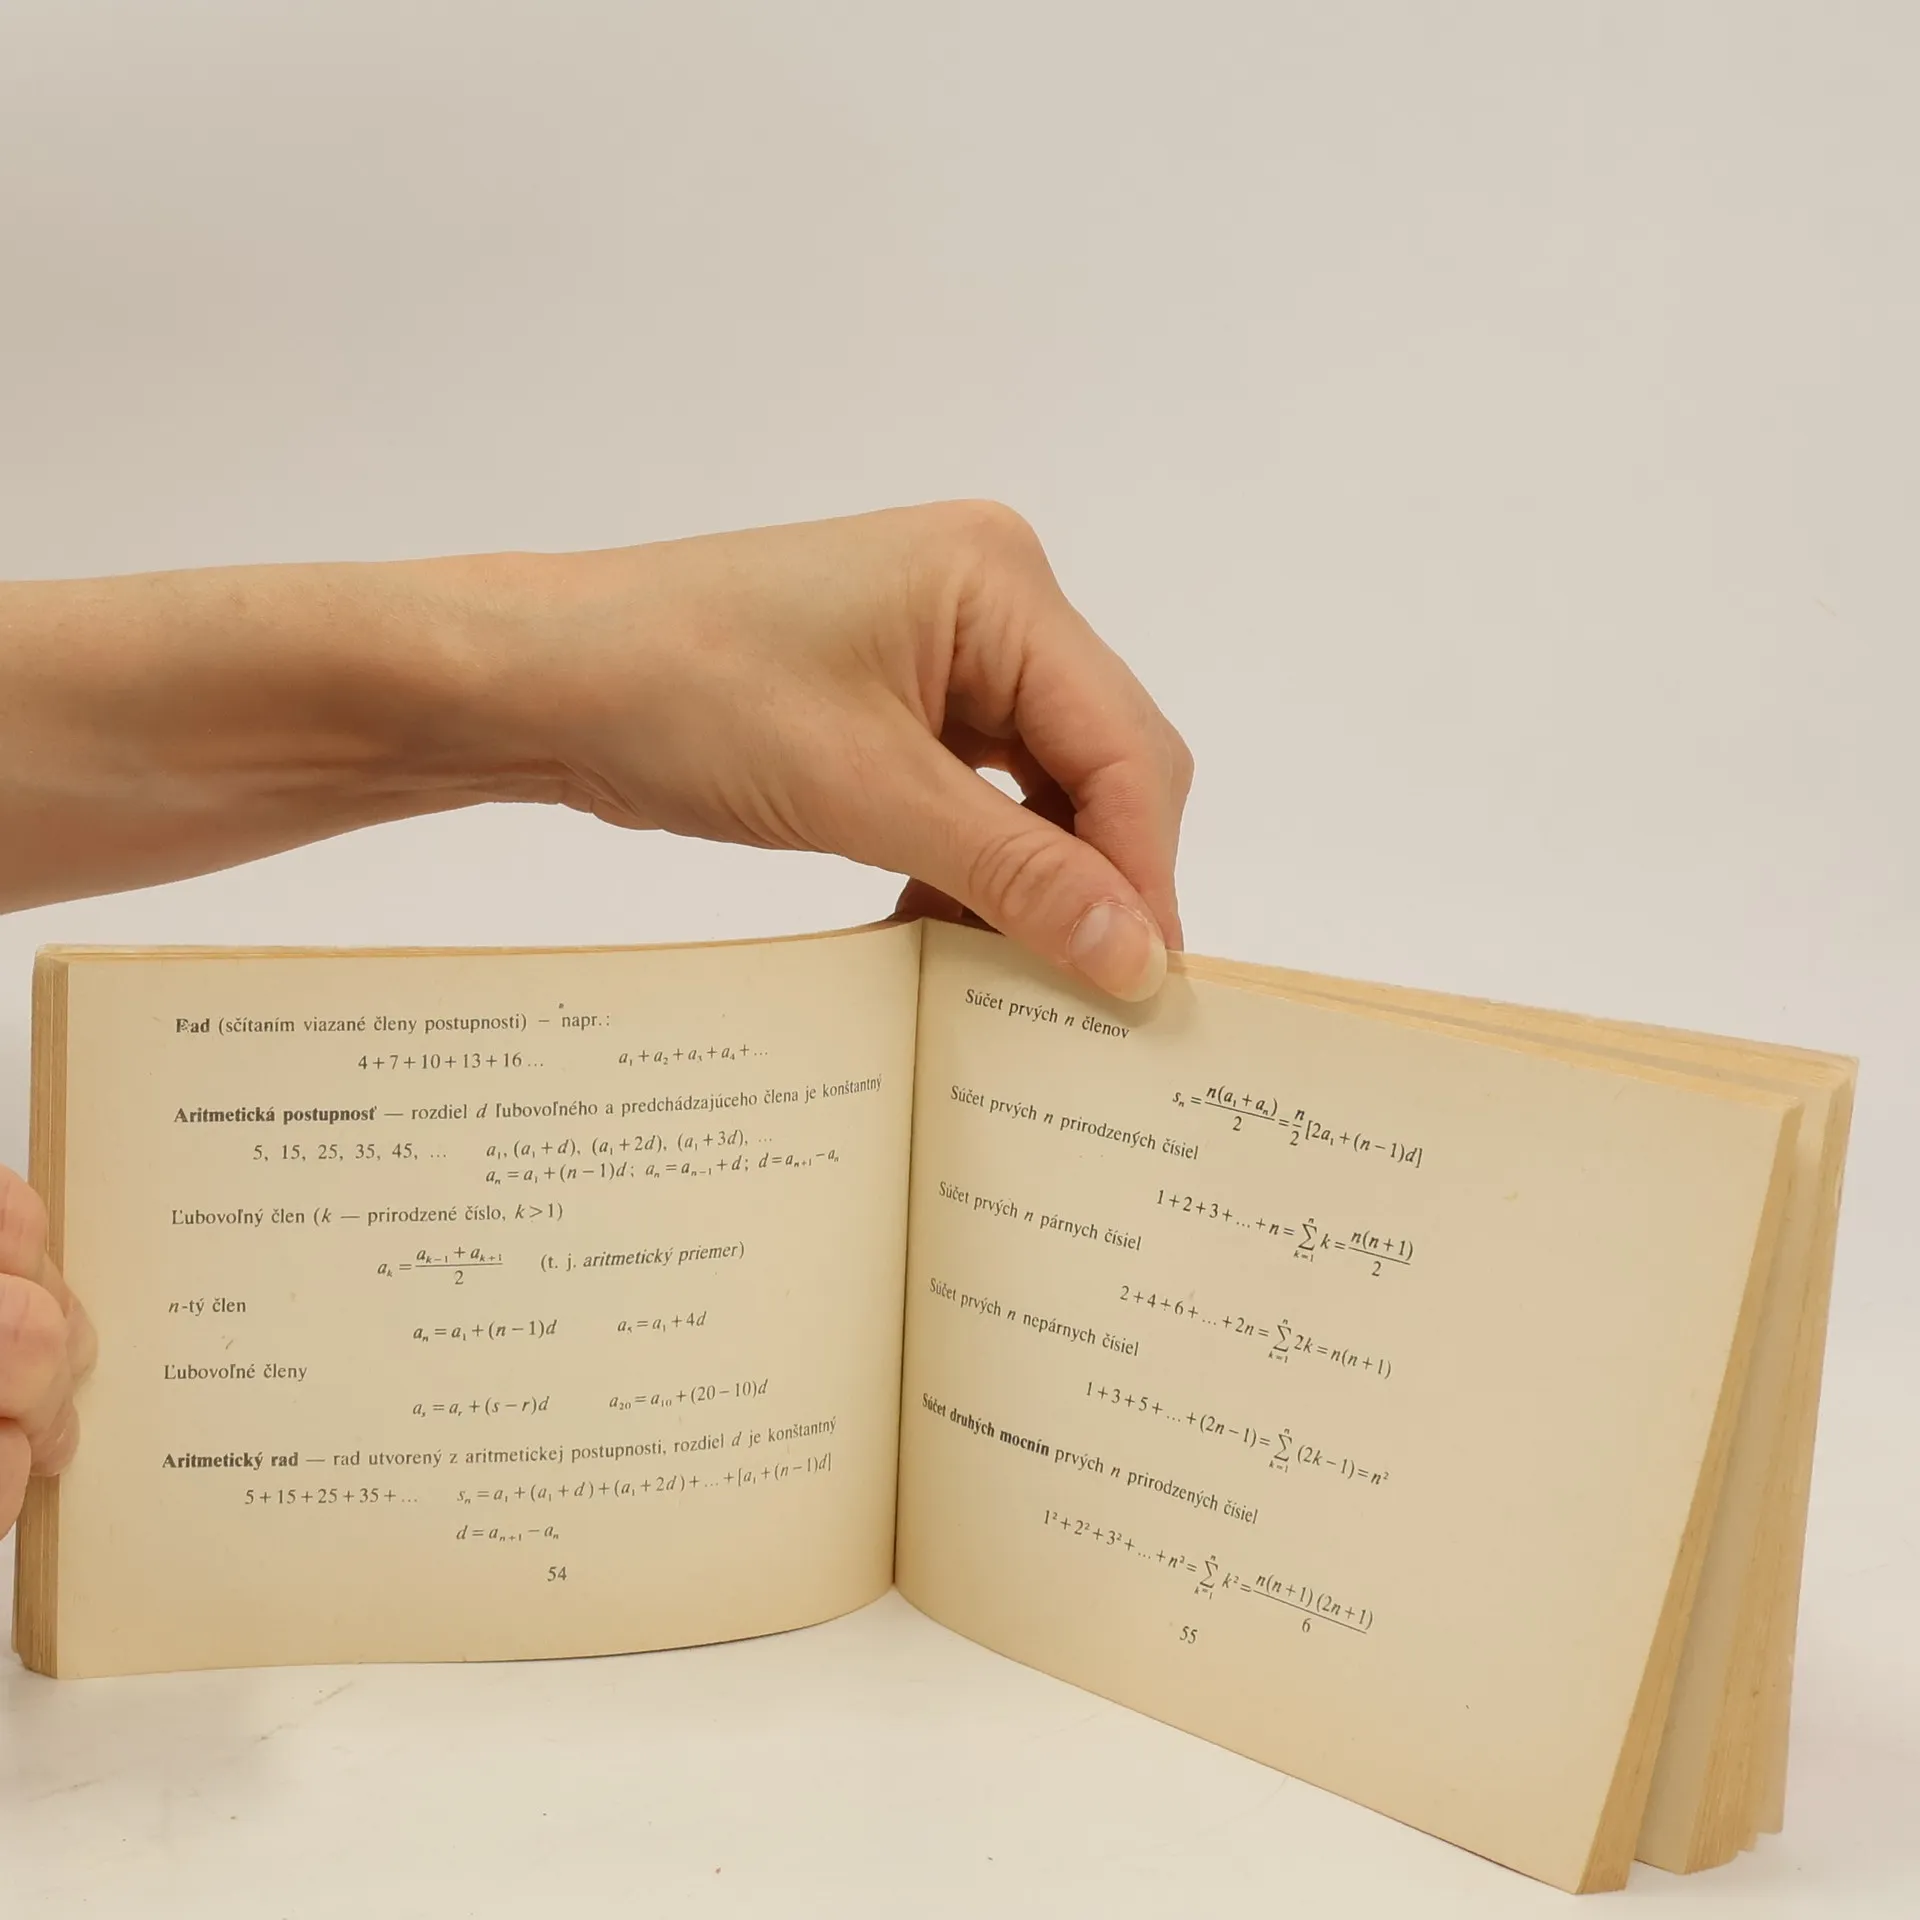 Rad (sčítaním viazané členy postupnosti) — napr.:
4 + 7 + 10 + 13 + 16 ... a₁ + a₂ + a₃ + a₄ + ...
Aritmetická postupnosť — rozdiel d ľubovoľného a predchádzajúceho člena je konštantný
5, 15, 25, 35, 45, ... a₁, (a₁ + d), (a₁ + 2d), (a₁ + 3d), ...
aₙ = a₁ + (n − 1)d; aₙ = aₙ₋₁ + d; d = aₙ₊₁ − aₙ
Ľubovoľný člen (k — prirodzené číslo, k > 1)
aₖ = (aₖ₋₁ + aₖ₊₁)/2 (t. j. aritmetický priemer)
n-tý člen
aₙ = a₁ + (n − 1)d a₅ = a₁ + 4d
Ľubovoľné členy
aₛ = aᵣ + (s − r)d a₂₀ = a₁₀ + (20 − 10)d
Aritmetický rad — rad utvorený z aritmetickej postupnosti, rozdiel d je konštantný
5 + 15 + 25 + 35 + ... sₙ = a₁ + (a₁ + d) + (a₁ + 2d) + ... + [a₁ + (n − 1)d]
d = aₙ₊₁ − aₙ
54
Súčet prvých n členov
sₙ = n(a₁ + aₙ)/2 = n/2 [2a₁ + (n − 1)d]
Súčet prvých n prirodzených čísiel
1 + 2 + 3 + ... + n = ∑ₖ₌₁ⁿ k = n(n + 1)/2
Súčet prvých n párnych čísiel
2 + 4 + 6 + ... + 2n = ∑ₖ₌₁ⁿ 2k = n(n + 1)
Súčet prvých n nepárnych čísiel
1 + 3 + 5 + ... + (2n − 1) = ∑ₖ₌₁ⁿ (2k − 1) = n²
Súčet druhých mocnín prvých n prirodzených čísiel
1² + 2² + 3² + ... + n² = ∑ₖ₌₁ⁿ k² = n(n + 1)(2n + 1)/6
55